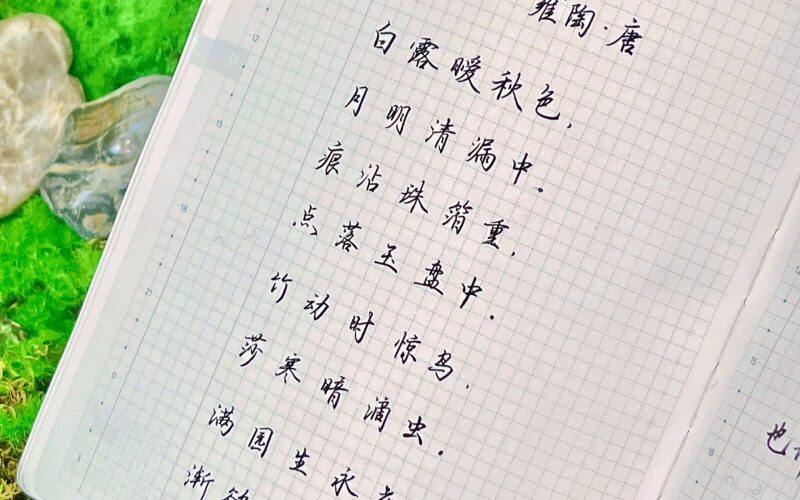 雍陶·唐
白露暧秋色，
月明清漏中。
痕沾珠箔重，
点落玉盘中。
竹动时惊鸟，
莎寒暗滴虫。
满园生永
渐
12
15
18
21
0
3
15
18
也